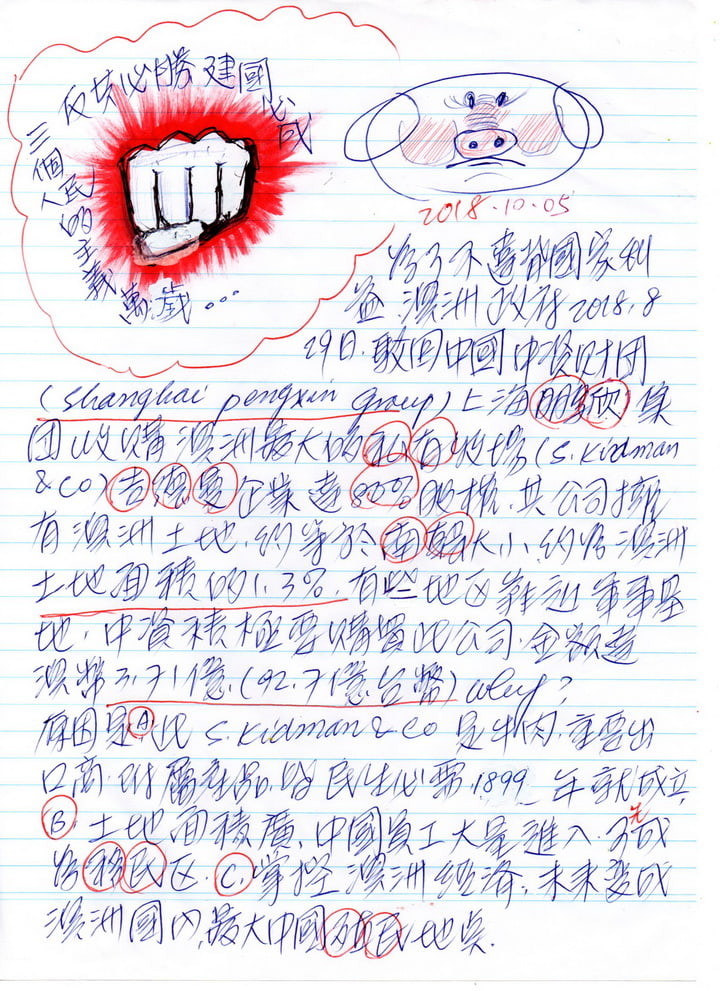 反共必勝建國必成
三個人民的主義萬歲...
2018.10.05
為了不遭損國家利
益 澳洲政府2018.8
29日.駁回中國中資財團
(shanghai pengxin group)上海朋欣集
團收購澳洲最大的私有牧場(S.Kidman
& CO)吉德曼企業達80%股權.其公司擁
有澳洲土地.約等於南韓大小約佔澳洲
土地面積的1.3%.有些地区靠近軍事基
地.中資積極要購買此公司.金額達
澳幣3.71億.(92.71億台幣)why?
原因是A此S.Kidman & Co是牛肉.主要出
口商.附屬產品.皆民生必需.1899年就成立.
B.土地面積廣.中國員工大量進入.可先成
為移民区.C.掌控澳洲經濟,未來變成
澳洲國內,最大中國殖民地矣.